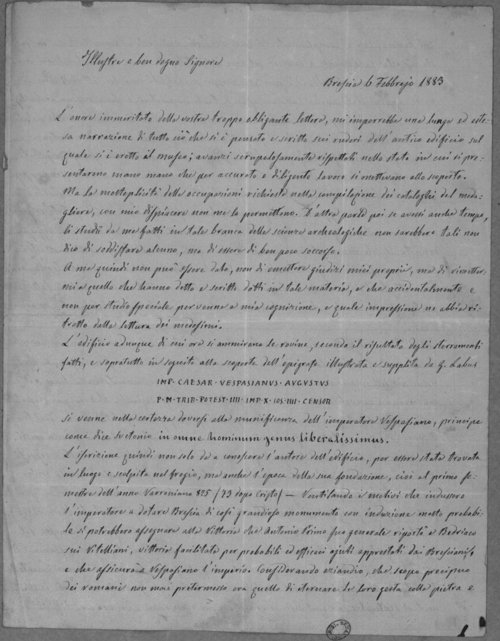 Illustre e ben degno Signore
Brescia 6 Febbrajo 1883
L'onore immeritato della vostra troppo obbligante lettera, mi imporrebbe una lunga ed este-
sa narrazione di tutto ciò che si è pensato e scritto sui ruderi dell'antico edificio sul
quale si è eretto il museo; avanzi scrupolosamente rispettati nello stato in cui si pre-
sentarono mano mano che per accurato e diligente lavoro si mettevano allo scoperto.
Ma la molteplicità delle occupazioni richieste nella compilazione dei cataloghi del meda-
gliere, con mio dispiacere non me lo permettono. D'altra parte poi se avessi anche tempo,
li studi da me fatti in tale branca della scienza archeologica non sarebbero tali non
dico di soddisfare alcuno, ma di essere di ben poco soccorso.
A me quindi non può essere dato, non di emettere giudizi miei proprii, ma di
a quello che hanno detto e scritto dotti in tale materia, e che accidentalmente e
non per studio speciale pervenne a mia cognizione, e quale impressione ne abbia ri-
tratto dalla lettura dei medesimi.
L'edificio adunque di cui ora si ammirano le rovine, secondo il risultato degli sterramenti
fatti, e sopratutto in seguito alla scoperta dell'epigrafe illustrata e supplita da G. Labus
IMP. CAESAR. VESPASIANVS. AVGVSTVS
P. M. TRIB. POTEST. IIII. IMP. X. COS. IIII. CENSOR
si venne nella certezza doversi alla munificenza dell'imperatore Vespasiano, principe
come dice Svetonio in omne hominum genus liberalissimus.
L'iscrizione quindi non solo dà a conoscere l'autore dell'edificio, per essere stata trovata
in luogo e scolpita nel fregio, ma anche l'epoca della sua fondazione, cioè al primo se-
mestre dell'anno Varroniano 825 / 73 dopo Cristo / — Ventilando i motivi che indussero
l'imperatore a dotare Brescia di così grandioso monumento con induzione molto probabi-
le si potrebbero assegnare alla Vittoria che Antonio Primo suo generale riportò a Bedriaco
sui Vitelliani, vittoria facilitata per probabili ed efficaci ajuti apportati dai Bresciani
e che assicurava a Vespasiano l'imperio. Considerando eziandio, che scopo precipuo
dei romani non mai pretermesso era quello di eternare le loro gesta colla pietra e